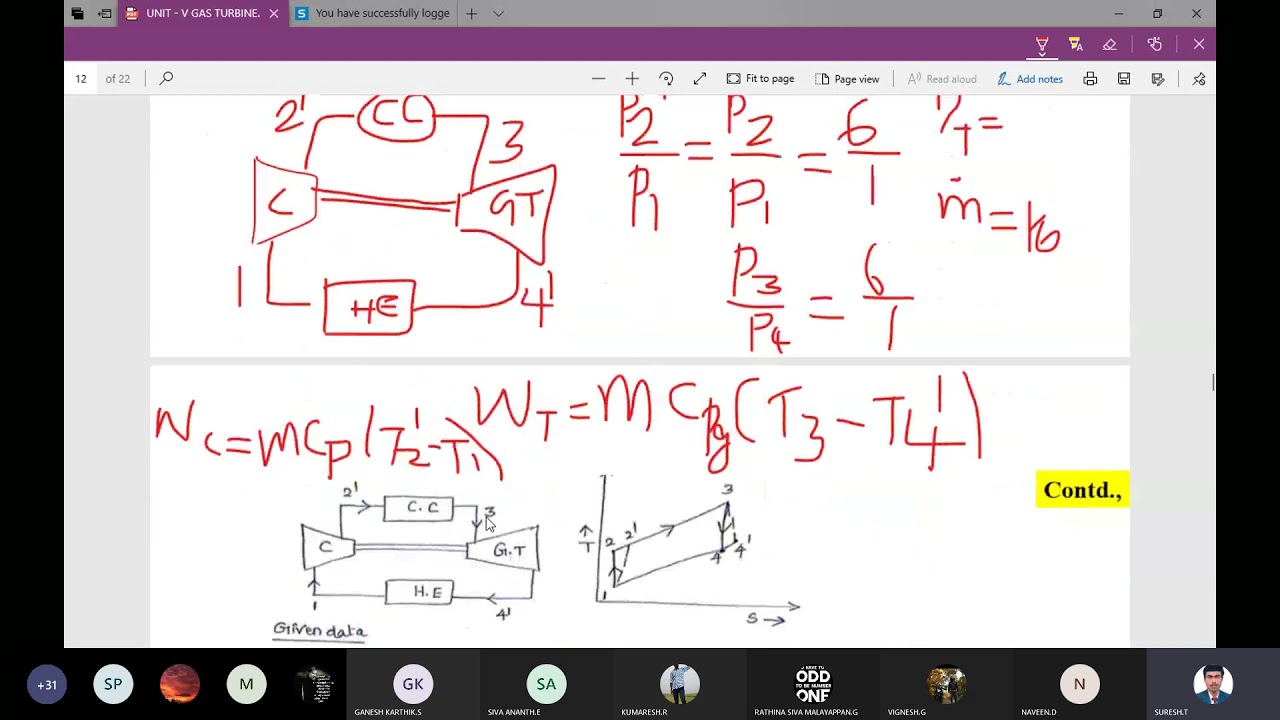 UNIT - V GAS TURBINE.
You have successfully logge
12 of 22
Fit to page
Page view
Read aloud
Add notes
2' CC 3
C GT
1 HE 4'
P2'/P1 = P2/P1 = 6/1
P3/P4 = 6/1
ηT =
ṁ =
WC = mCp(T2' - T1)
WT = m Cpg (T3 - T4')
Contd.,
2' C.C 3
C G.T
1 H.E 4'
Given data
T 2 2' 3
4 4'
1 S
+31 SP M GK SA N
ODD
ONF
GANESH KARTHIK.S
SIVA ANANTH.E
KUMARESH.R
RATHINA SIVA MALAYAPPAN.G
VIGNESH.G
NAVEEN.D
SURESH.T